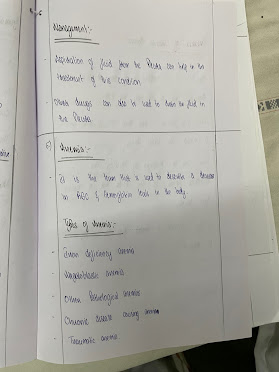 Management:-
- Aspiration of fluid from the Pleura can help in the
treatment of this condition
- Other drugs can also be used to drain the fluid in
the Pleura
6) Anemia:-
- It is the term that is used to describe a decrease
in RBC & hemoglobin levels in the body.
Types of Anemia:-
- Iron deficiency anemia
- Megaloblastic anemia
- Other Pathological anemias
- Chronic disease causing anemia
- Traumatic anemia